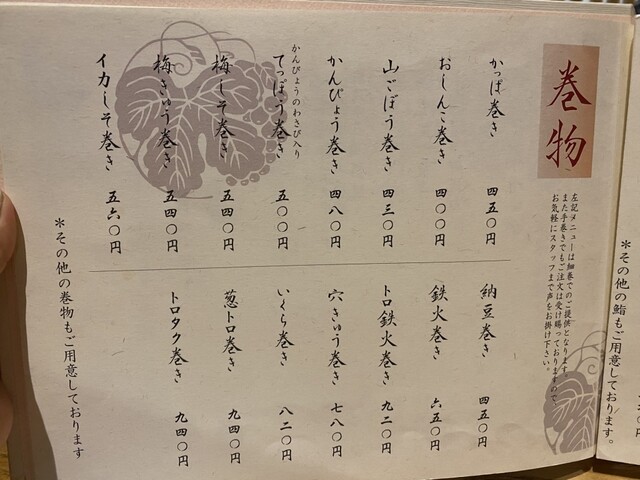 巻物
左記メニューは細巻でのご提供となります。
また手巻きでもご注文は受け賜っておりますので
お気軽にスタッフまで声をお掛け下さい。
かっぱ巻き 四五〇円
おしんこ巻き 四〇〇円
山ごぼう巻き 四三〇円
かんぴょう巻き 四八〇円
かんぴょうのわさび入り
てっぽう巻き 五〇〇円
梅しそ巻き 五四〇円
梅きゅう巻き 五四〇円
イカしそ巻き 五六〇円
納豆巻き 四五〇円
鉄火巻き 六五〇円
トロ鉄火巻き 九二〇円
穴きゅう巻き 七八〇円
いくら巻き 八二〇円
葱トロ巻き 九四〇円
トロタク巻き 九四〇円
＊その他の巻物もご用意しております
＊その他の鮨もご用意しております。